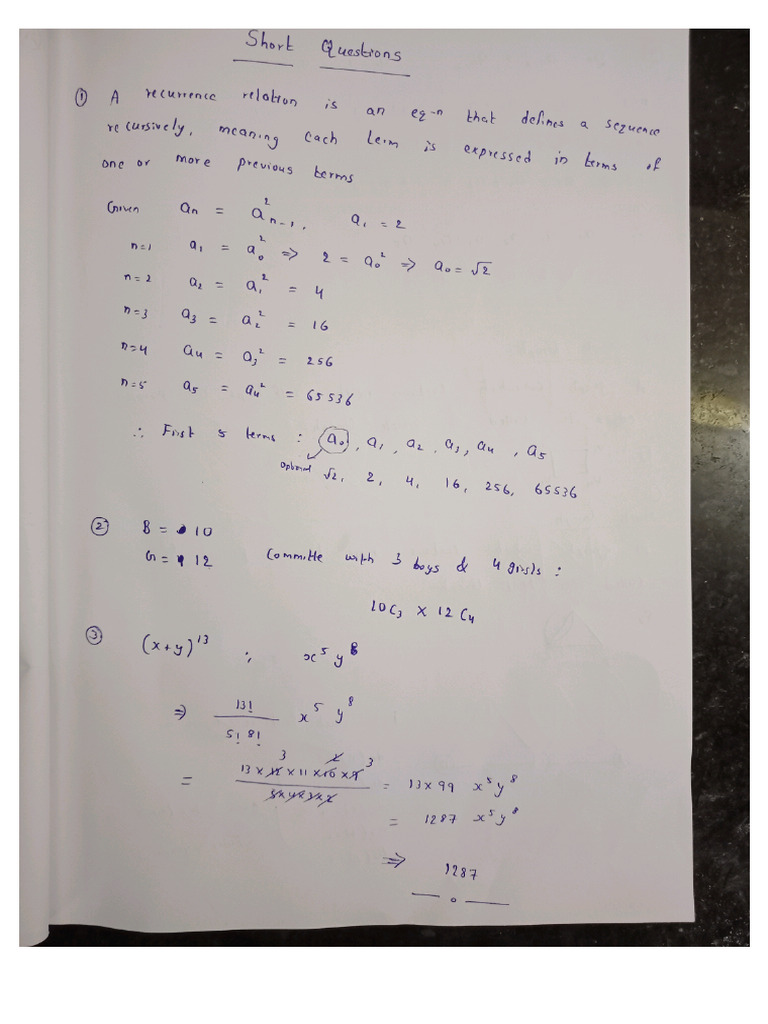 Short Questions
① A recurrence relation is an eq-n that defines a sequence
recursively, meaning each term is expressed in terms of
one or more previous terms
Given aₙ = a²ₙ₋₁, a₁ = 2
n=1 a₁ = a₀² ⇒ 2 = a₀² ⇒ a₀ = √2
n=2 a₂ = a₁² = 4
n=3 a₃ = a₂² = 16
n=4 a₄ = a₃² = 256
n=5 a₅ = a₄² = 65536
∴ First 5 terms : a₀, a₁, a₂, a₃, a₄, a₅
optional √2, 2, 4, 16, 256, 65536
② B = 10
G = 12 Committe with 3 boys & 4 girls :
10C₃ × 12C₄
③ (x+y)¹³ ; x⁵ y⁸
⇒ 13! / 5! 8! x⁵ y⁸
3 2 3
= 13 × 12 × 11 × 10 × 9 / 5 × 4 × 3 × 2 = 13 × 99 x⁵y⁸
= 1287 x⁵y⁸
⇒ 1287